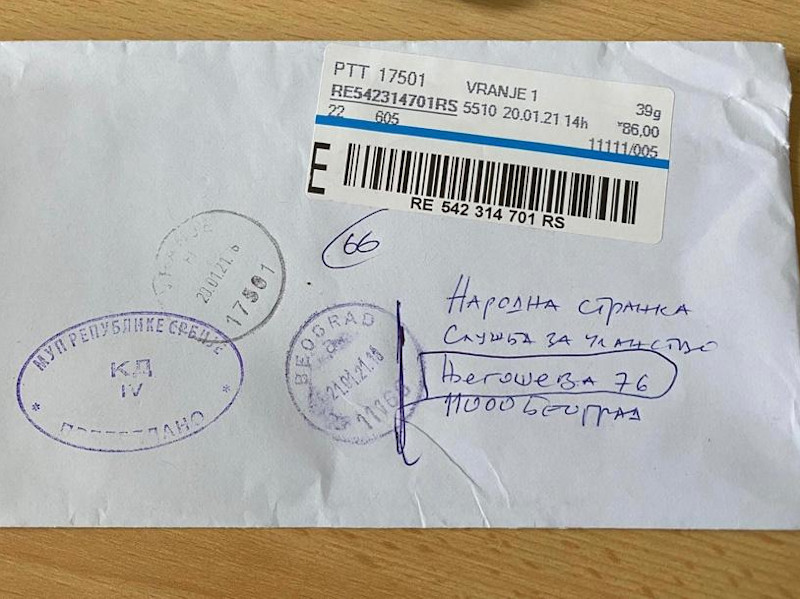 PTT 17501 VRANJE 1 39g
RE542314701RS 5510 20.01.21 14h *86,00
22 605 11111/005
E
RE 542 314 701 RS
66
20.01.21.
17501
МУП РЕПУБЛИКЕ СРБИЈЕ
КД
IV
BEOGRAD
21.01.21.
НАРОДНА СТРАНКА
СЛУЖБА ЗА ЧЛАНСТВО
ЊЕГОШЕВА 76
11000 БЕОГРАД